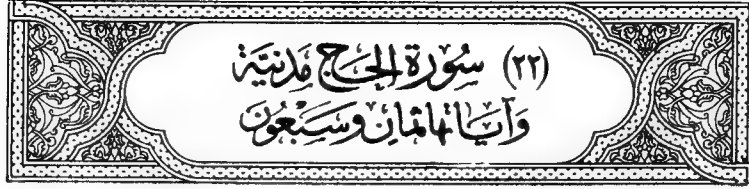 (٢٢) سُورَةُ الحَجّ مَدَنِيَّة
وَآيَاتُهَا ثَمَانٍ وَسَبْعُونَ